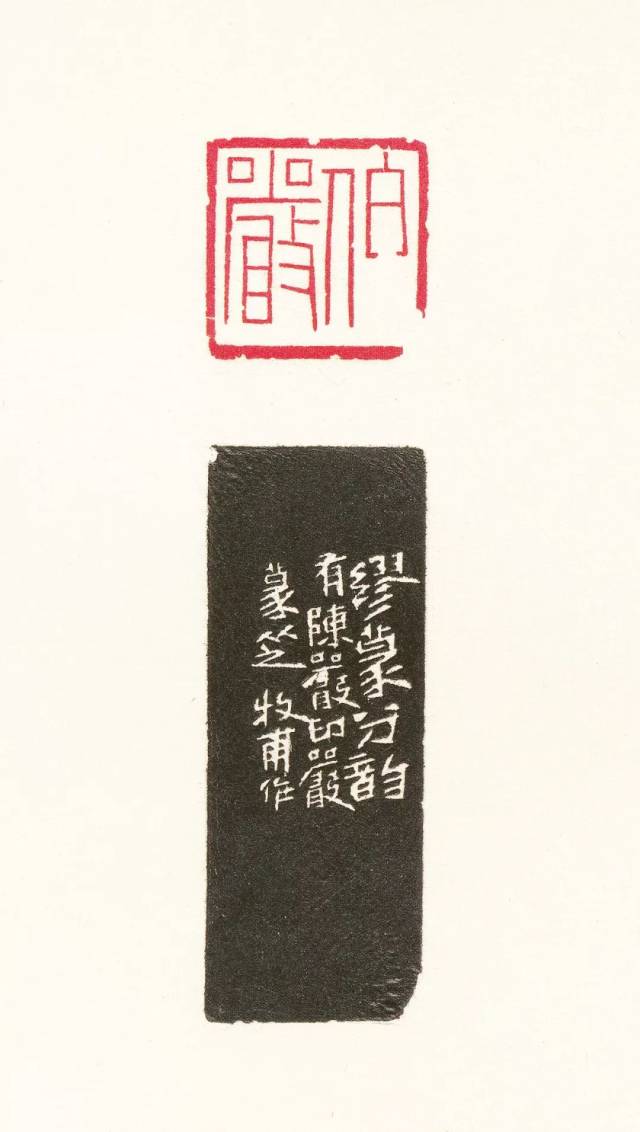 伯嚴
繆篆分韵
有陳嚴印嚴
篆从之 牧甫作